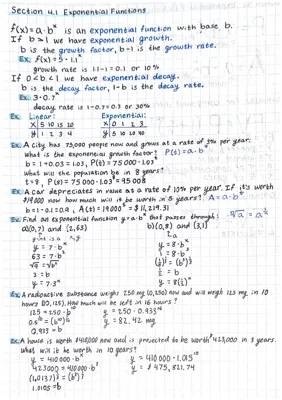 Section 4.1 Exponential Functions
f(x)=a·bˣ is an exponential function with base b.
If b>1 we have exponential growth.
b is the growth factor, b-1 is the growth rate.
Ex: f(x)=5·1.1ˣ
growth rate is 1.1-1=0.1 or 10%
If 0<b<1 we have exponential decay.
b is the decay factor, 1-b is the decay rate.
Ex: 3·0.7ˣ
decay rate is 1-0.7=0.3 or 30%
Ex: Linear: Exponential:
X 5 10 15 20 X 0 1 2 3
y 1 2 3 4 y 5 10 20 40
Ex: A city has 75,000 people now and grows at a rate of 3% per year.
What is the exponential growth factor? P(t)=a·bᵗ
b=1+0.03=1.03, P(t)=75000·1.03ᵗ
What will the population be in 8 years?
t=8, P(t)=75000·1.03⁸=95008
Ex: A car depreciates in value at a rate of 10% per year. If it's worth
$19000 now how much will it be worth in 5 years? A=a·bᵗ
b=1-0.1=0.9, A(t)=19000ᵗ = $11,219.31
Ex: Find an exponential function y=a·bˣ that passes through:
a)(0,7) and (2,63) b)(0,8) and (3,1)
y=7·bˣ y=8·bˣ
63=7·b²
√9=√b²
3=b ½=b
y=7·3ˣ y=8(½)ˣ
Ex: A radioactive substance weighs 250 mg (0,250) now and will weigh 125 mg in 10
hours (10,125). How much will be left in 16 hours?
125=250·b¹⁰ y=250·0.933¹⁶
y=82.42 mg
0.933=b
Ex: A house is worth $410,000 now and is projected to be worth $423,000 in 3 years.
What will it be worth in 10 years?
y=410000·bˣ y=410000·1.015¹⁰
y=$475,821.74
1.0105=b